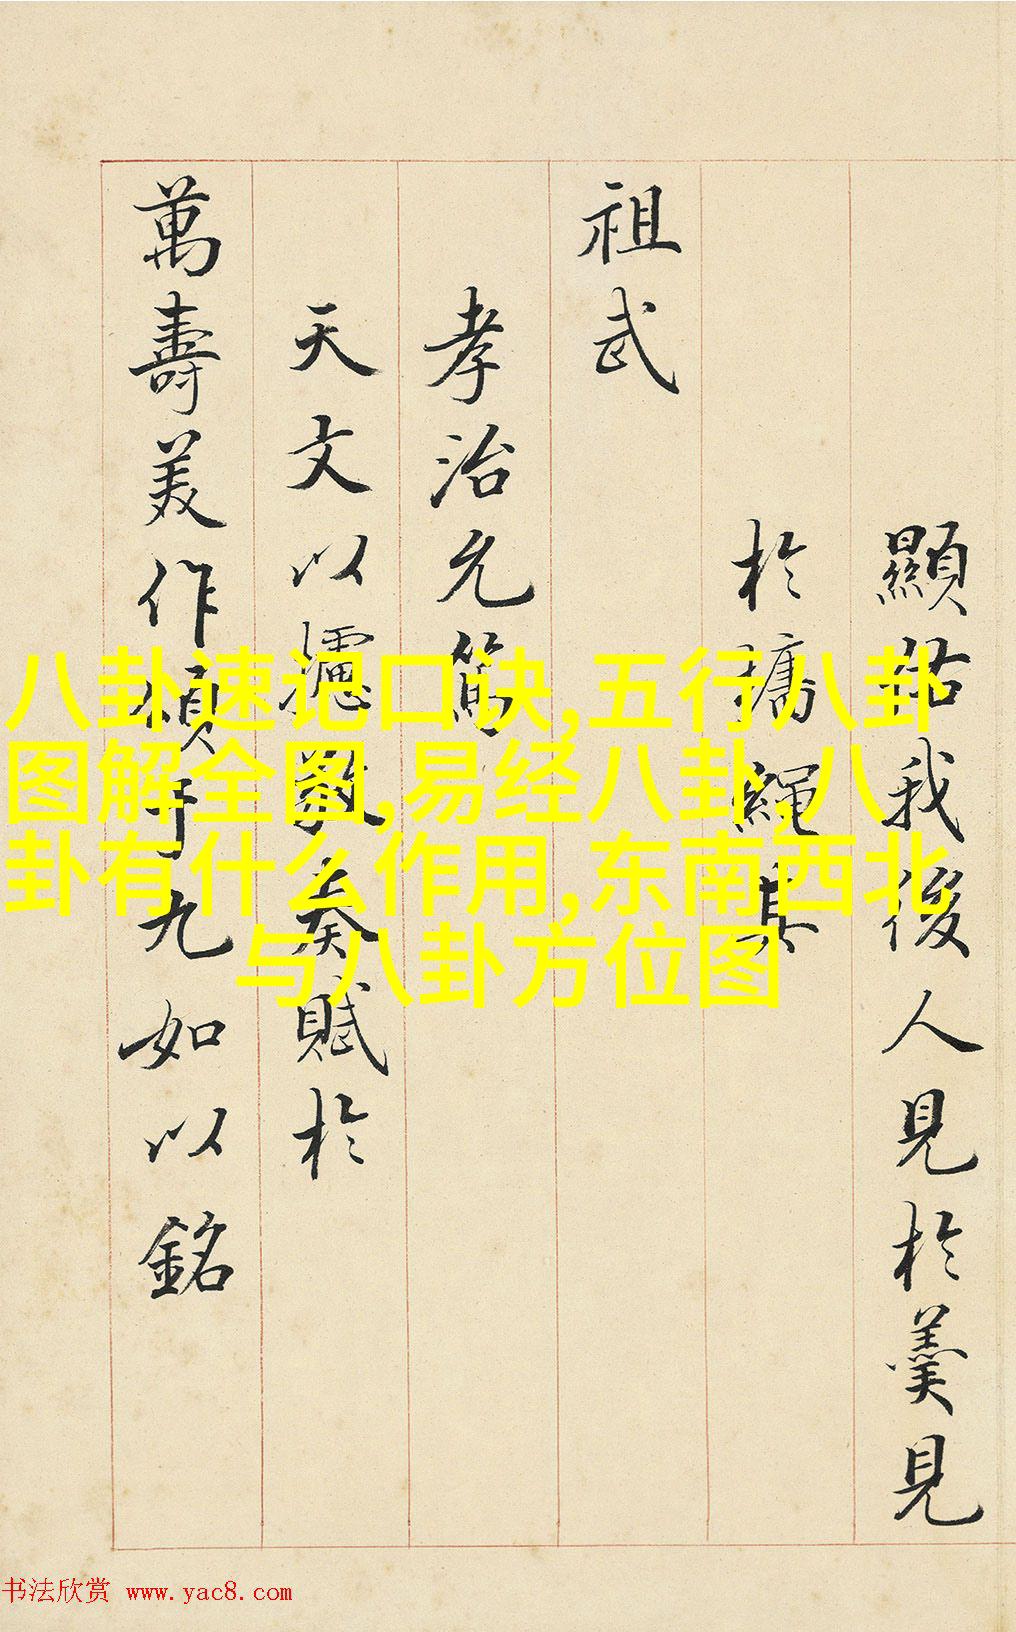 顯我後人見於羹見
於牆繩其
祖武
孝治允篤
天文以攄敷奏賦於
萬壽美作頌于九如以銘
八卦速记口诀,五行八卦
图解全图,易经八卦,八
卦有什么作用,东南西北
与八卦方位图
书法欣赏 www.yac8.com